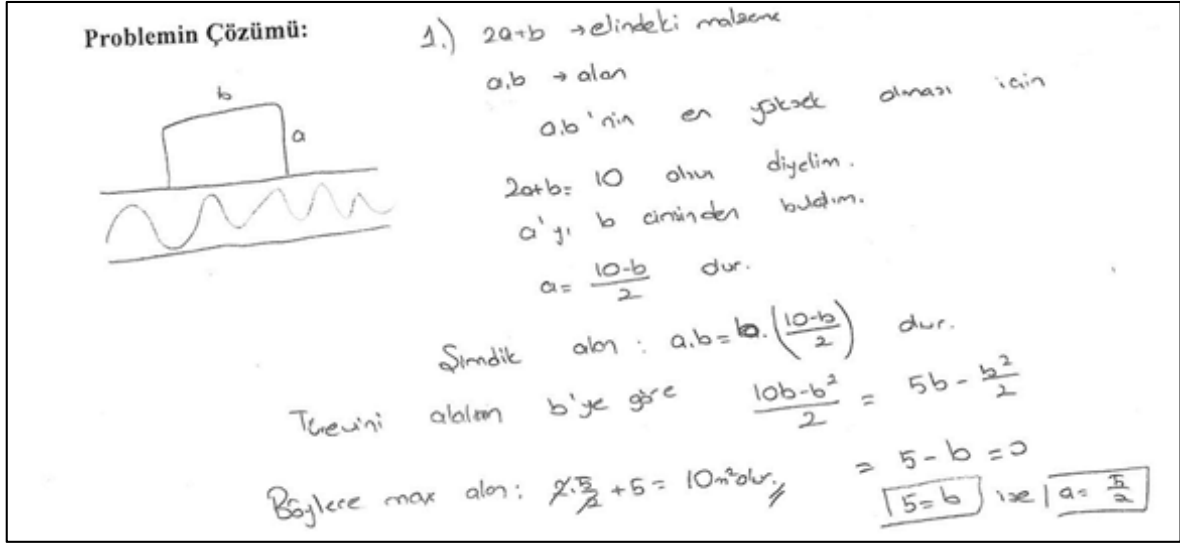 Problemin Çözümü:
1.) 2a+b → elindeki malzeme
a.b → alan
a.b'nin en yüksek olması için
2a+b= 10 olsun diyelim.
a'yı b cinsinden buldum.
a= \frac{10-b}{2} dur.
b
a
Şimdik alan : a.b= b.(\frac{10-b}{2}) dur.
Türevini alalım b'ye göre \frac{10b-b²}{2} = 5b - \frac{b²}{2}
= 5-b =0
5=b ise a= \frac{5}{2}
Böylece max alan: 2.\frac{5}{2} +5= 10m² olur.